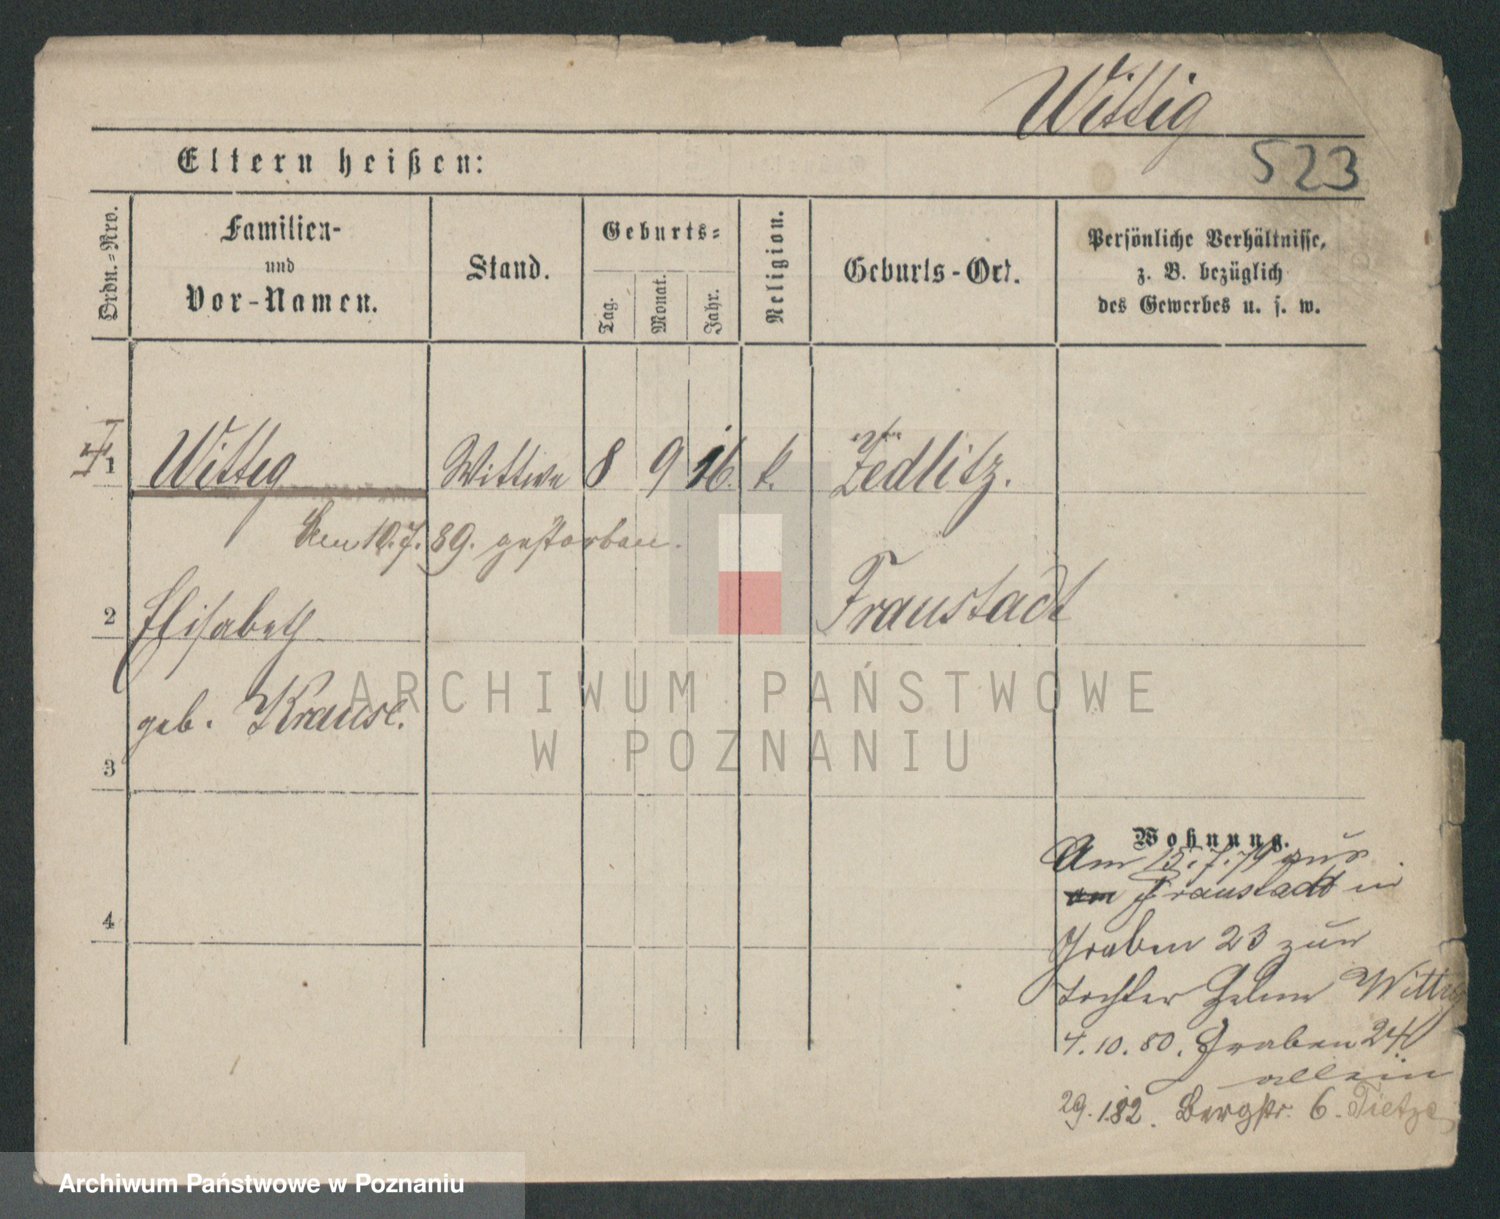 Wittig
523
Eltern heißen:
Ordn.-Nro.
Familien-
und
Vor-Namen.
Stand.
Geburts-
Tag.
Monat.
Jahr.
Religion.
Geburts-Ort.
Persönliche Verhältnisse,
z. B. bezüglich
des Gewerbes u. s. w.
1 Wittig Wittwe 8 9 16. k. Zedlitz.
Den 10.7.89. gestorben.
2 Elisabeth Fraustadt
geb. Krause.
3
4
Wohnung.
Am 15.7.79 aus
Fraustadt in
Graben 23 zur
Tochter Wittig
4.10.80. Graben 24
allein
29.1.82. Bergstr. 6. Tietze
ARCHIWUM PAŃSTWOWE
W POZNANIU
Archiwum Państwowe w Poznaniu